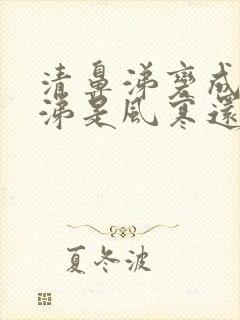 清鼻涕變成
涕是風寒還
夏冬波